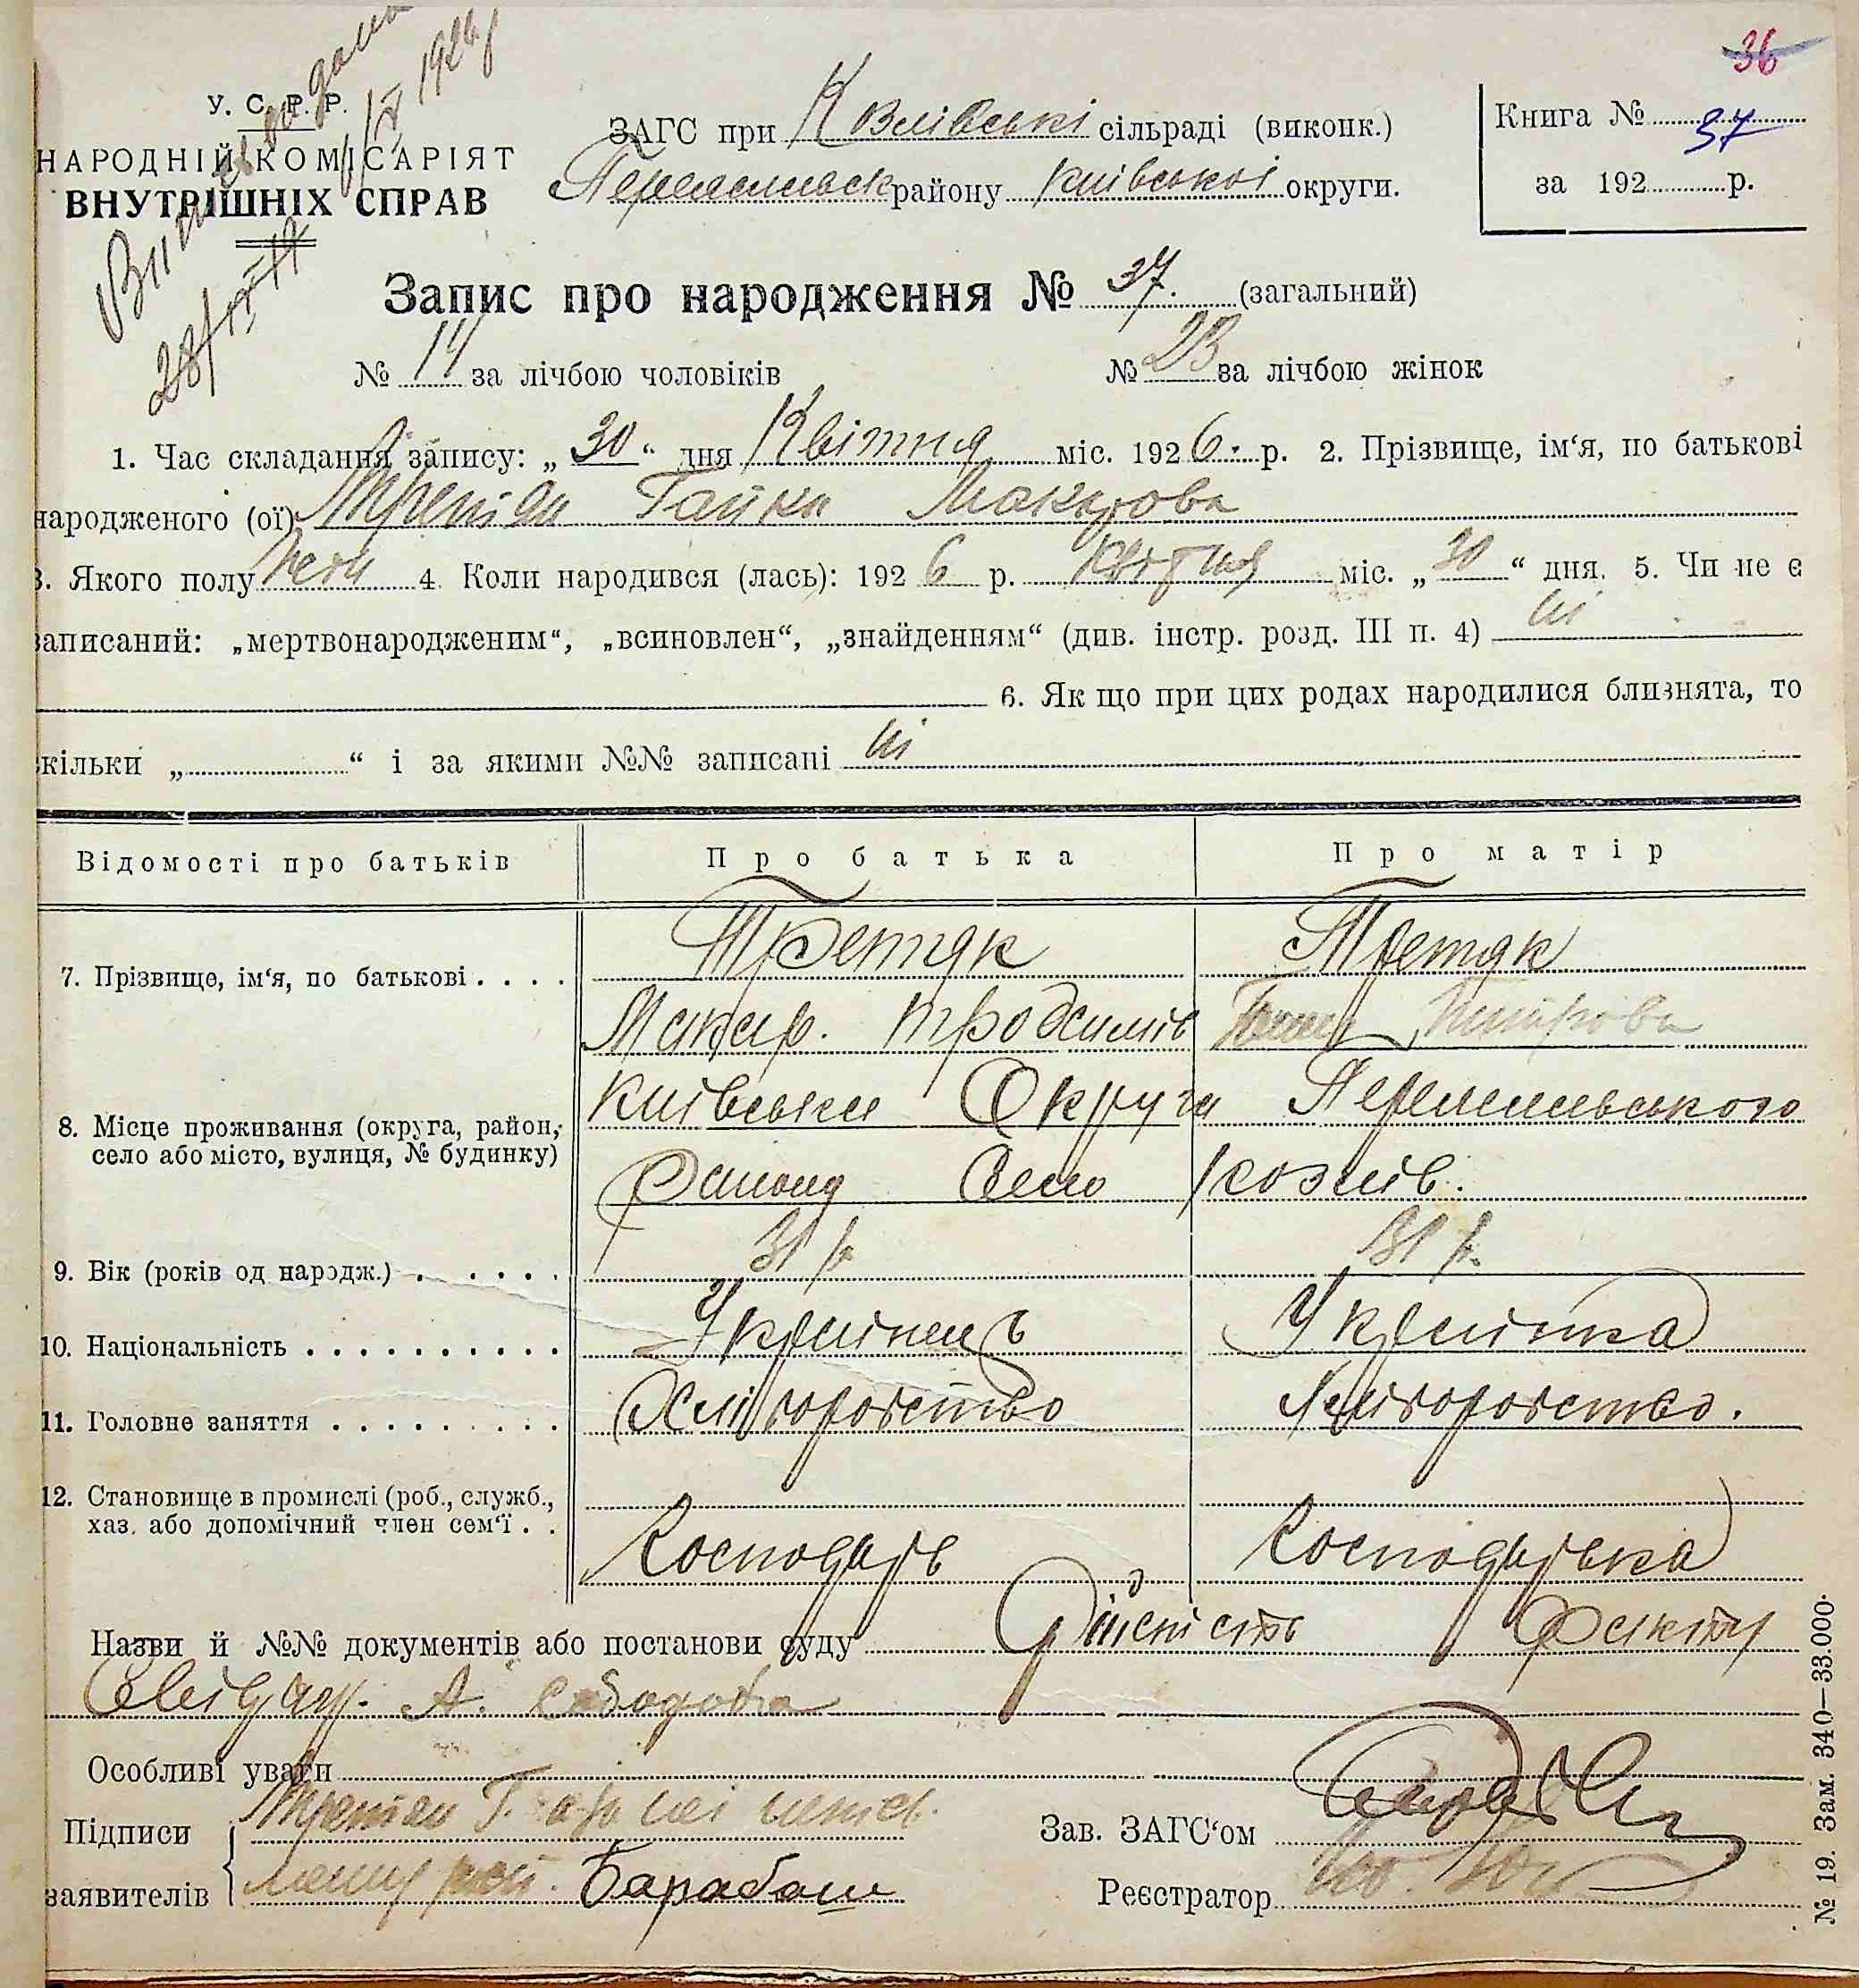 36
У. С. Р. Р.
НАРОДНІЙ КОМІСАРІЯТ
ВНУТРІШНІХ СПРАВ
1926 р
28/IX
ЗАГС при Козлівські сільраді (виконк.)
району Київської округи.
Книга № 37
за 192 р.
Запис про народження № 37. (загальний)
№ 14 за лічбою чоловіків № 23 за лічбою жінок
1. Час складання запису: „30“ дня Квітня міс. 1926. р. 2. Прізвище, ім‘я, по батькові
народженого (ої) Третяк Макарова
3. Якого полу 4. Коли народився (лась): 1926 р. Квітня міс. „30“ дня. 5. Чи не є
записаний: „мертвонародженим“, „всиновлен“, „знайденням“ (див. інстр. розд. III п. 4) ні
6. Як що при цих родах народилися близнята, то
скільки „ “ і за якими №№ записані ні
Відомості про батьків Про батька Про матір
7. Прізвище, ім‘я, по батькові . . . . Третяк Третяк
Макар.
8. Місце проживання (округа, район,
село або місто, вулиця, № будинку)
Київська Округи
Района Село Козлів.
9. Вік (років од народж.) . . . . . . 31 р. 31 р.
10. Національність . . . . . . . . . . . Українець Українка
11. Головне заняття . . . . . . . . . Хліборобство Хліборобство.
12. Становище в промислі (роб., служб.,
хаз. або допомічний член сем‘ї . .
Господарь Господарька
Назви й №№ документів або постанови суду Дійсність факту
А.
Особливі уваги
Підписи Третяк
заявителів Барабаш
Зав. ЗАГС‘ом
Реєстратор
№ 19. Зам. 340—33.000.